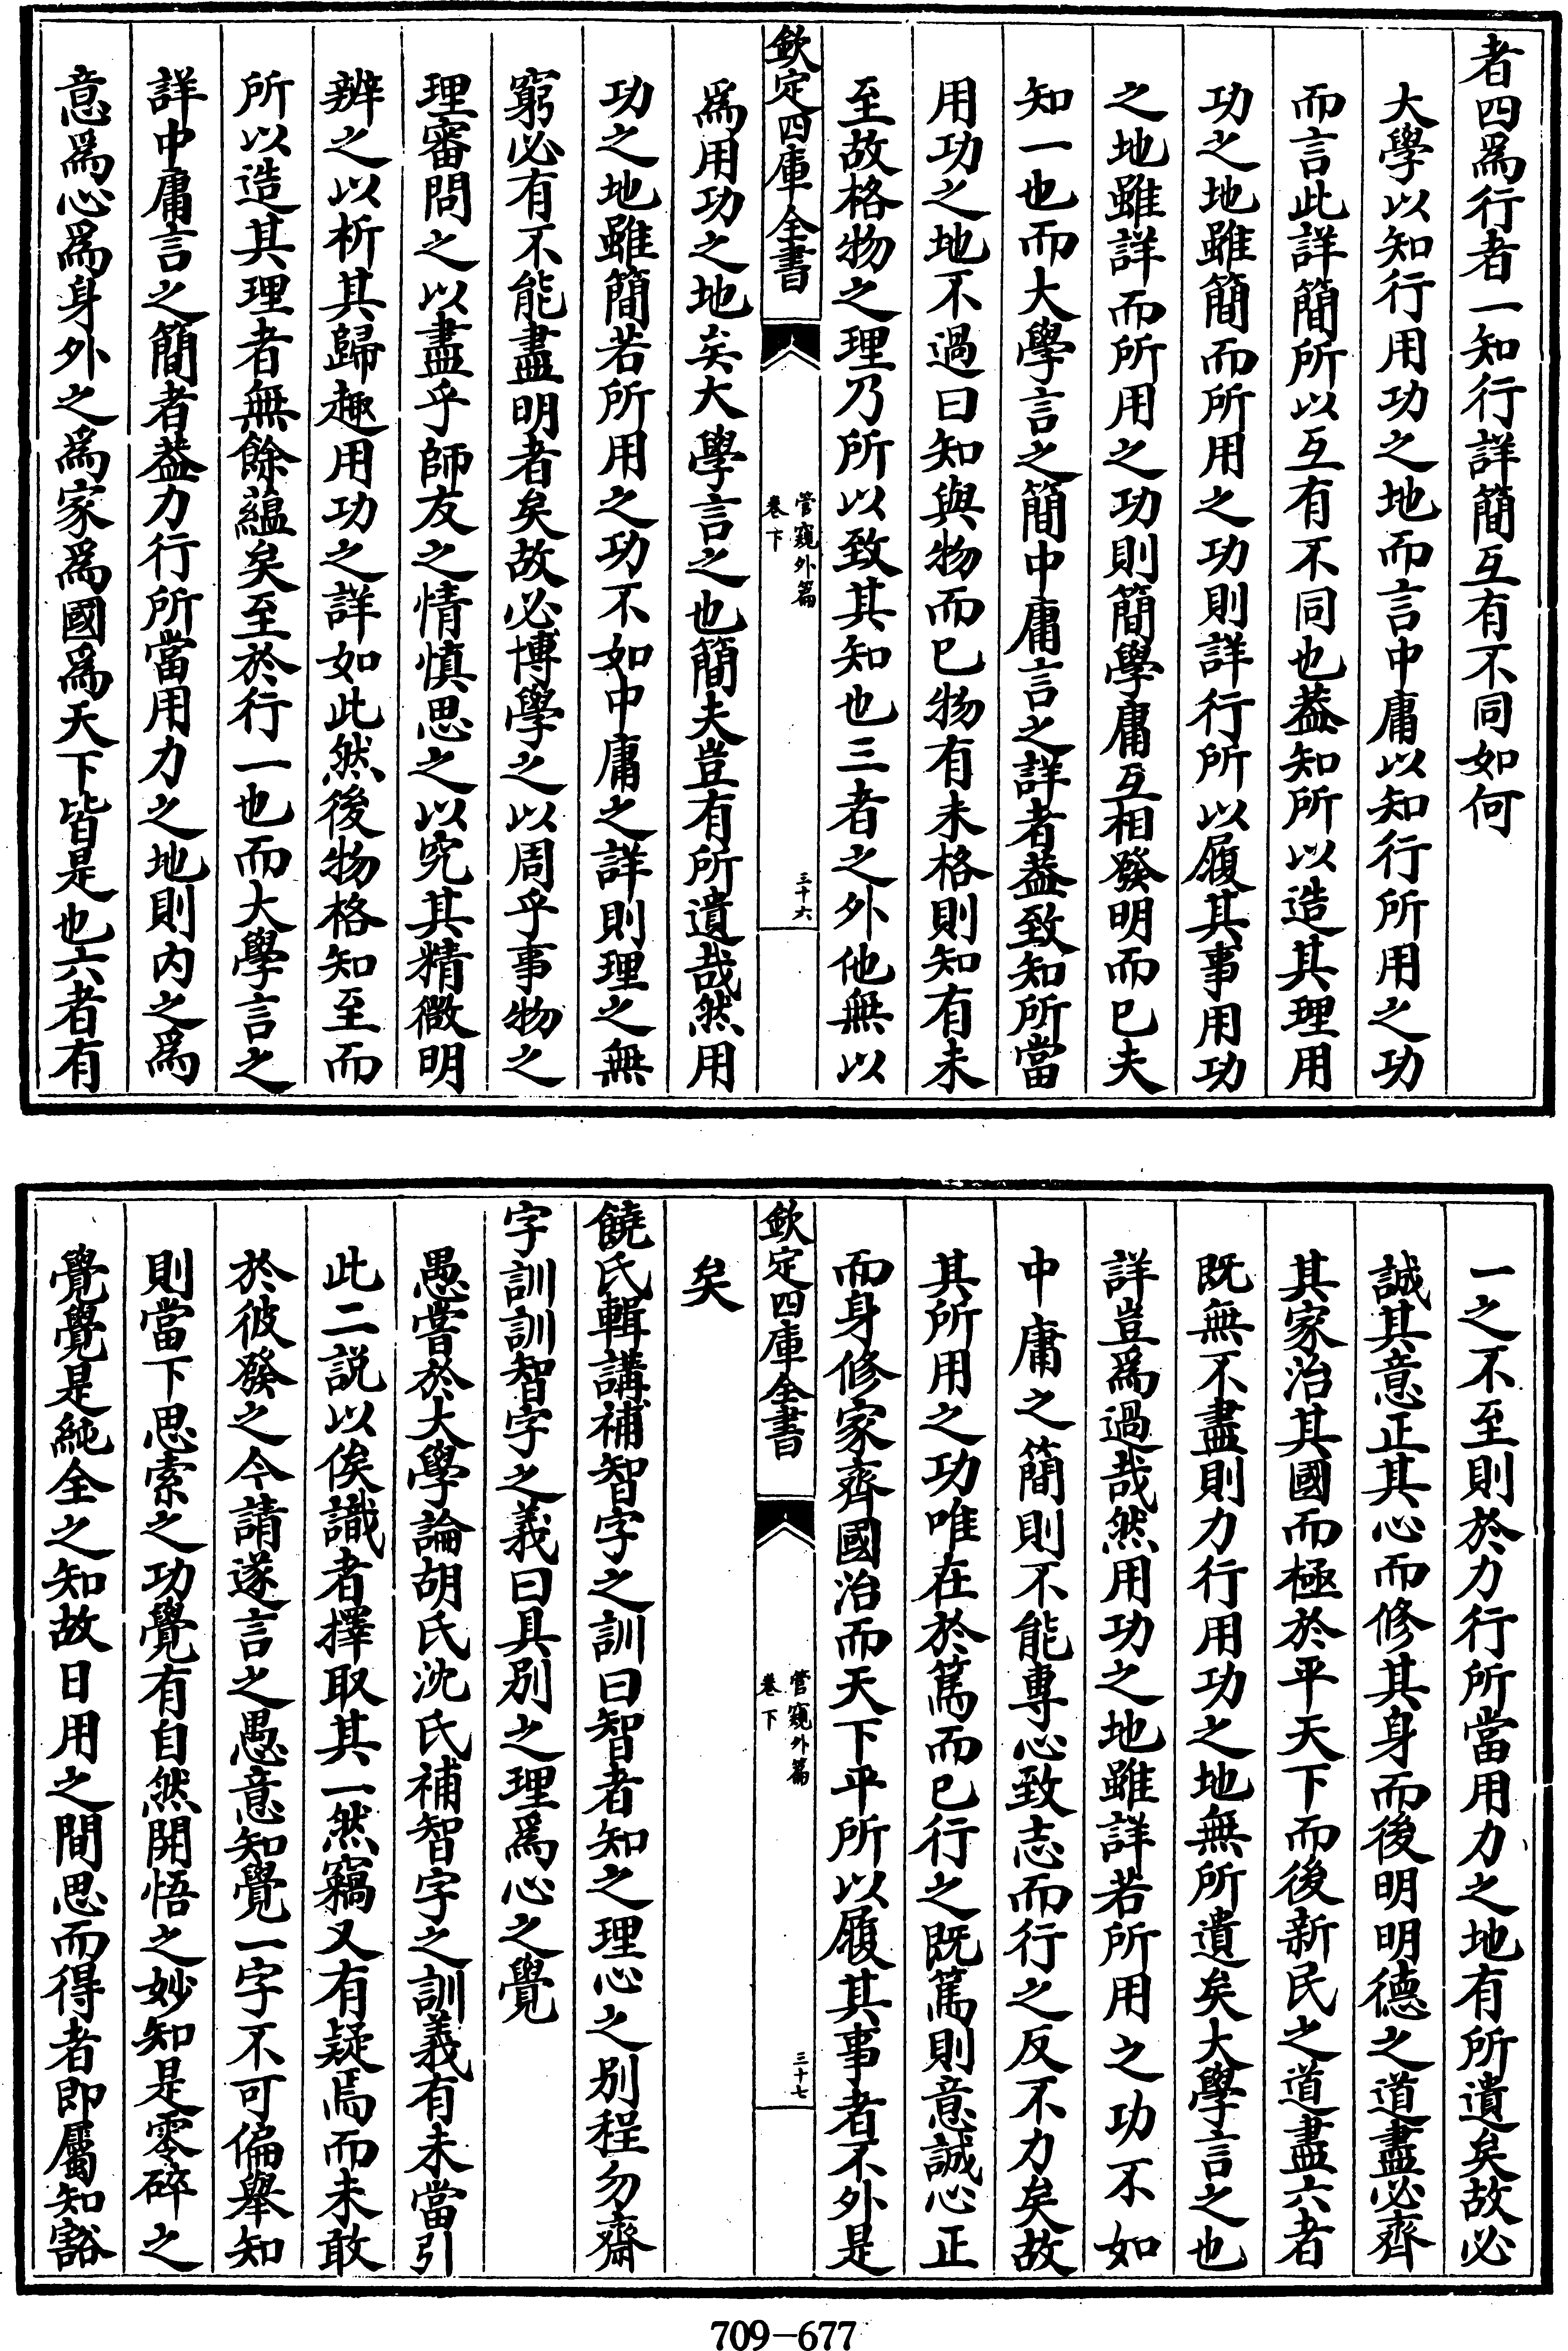 者四爲行者一知行詳簡互有不同如何
大學以知行用功之地而言中庸以知行所用之功
而言此詳簡所以互有不同也葢知所以造其理用
功之地雖簡而所用之功則詳行所以履其事用功
之地雖詳而所用之功則簡學庸互相發明而已夫
知一也而大學言之簡中庸言之詳者葢致知所當
用功之地不過曰知與物而已物有未格則知有未
至故格物之理乃所以致其知也三者之外他無以
欽定四庫全書
管窺外篇
卷下
三十六
爲用功之地矣大學言之也簡夫豈有所遺哉然用
功之地雖簡若所用之功不如中庸之詳則理之無
窮必有不能盡明者矣故必博學之以周乎事物之
理審問之以盡乎師友之情慎思之以究其精微明
辨之以析其歸趣用功之詳如此然後物格知至而
所以造其理者無餘蘊矣至於行一也而大學言之
詳中庸言之簡者葢力行所當用力之地則内之爲
意爲心爲身外之爲家爲國爲天下皆是也六者有
一之不至則於力行所當用力之地有所遺矣故必
誠其意正其心而修其身而後明明德之道盡必齊
其家治其國而極於平天下而後新民之道盡六者
既無不盡則力行用功之地無所遺矣大學言之也
詳豈爲過哉然用功之地雖詳若所用之功不如
中庸之簡則不能專心致志而行之反不力矣故
其所用之功唯在於篤而已行之既篤則意誠心正
而身修家齊國治而天下平所以履其事者不外是
欽定四庫全書
管窺外篇
卷下
三十七
矣
饒氏輯講補智字之訓曰智者知之理心之别程勿齋
字訓訓智字之義曰具别之理爲心之覺
愚嘗於大學論胡氏沈氏補智字之訓義有未當引
此二説以俟識者擇取其一然竊又有疑焉而未敢
於彼發之今請遂言之愚意知覺一字不可偏舉知
則當下思索之功覺有自然開悟之妙知是零碎之
覺覺是純全之知故日用之間思而得者即屬知豁
709-677